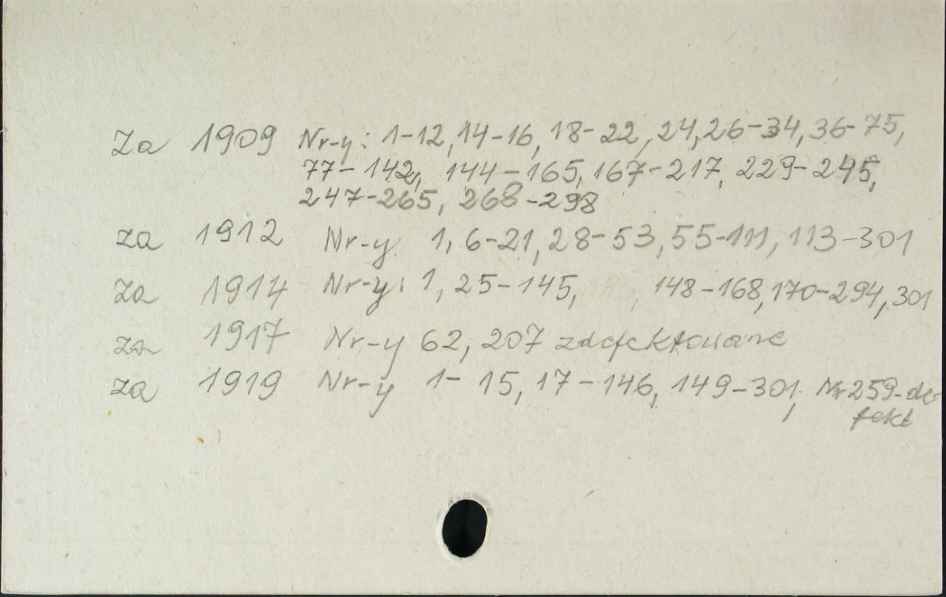 Za 1909 Nr-y: 1-12, 14-16, 18-22, 24, 26-34, 36-75,
77-142, 144-165, 167-217, 229-245,
247-265, 268-298
za 1912 Nr-y 1, 6-21, 28-53, 55-111, 113-301
za 1914 Nr-y: 1, 25-145, 148-168, 170-294, 301
za 1917 Nr-y 62, 207 zdefektowane
za 1919 Nr-y 1-15, 17-146, 149-301, Nr 259-de-
fekt